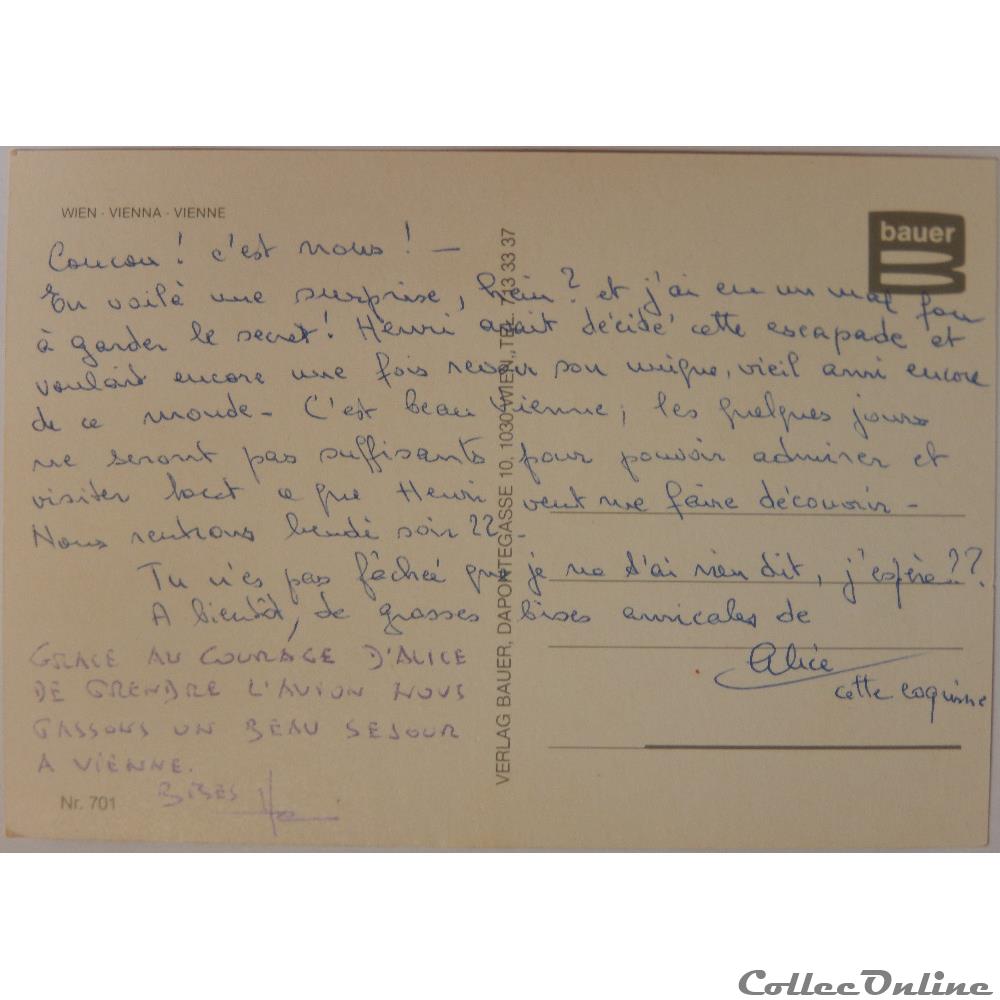 WIEN - VIENNA - VIENNE
bauer
Coucou ! c'est nous ! —
En voilà une surprise, hein ? et j'ai eu un mal fou
à garder le secret ! Henri avait décidé cette escapade et
voulait encore une fois revoir son unique, vieil ami encore
de ce monde - C'est beau Vienne ; les quelques jours
ne seront pas suffisants pour pouvoir admirer et
visiter tout ce que Henri veut me faire découvrir -
Nous rentrons lundi soir 22 -
Tu n'es pas fâchée que je ne t'ai rien dit, j'espère ??
A bientôt, de grosses bises amicales de
Alice
cette coquine
GRACE AU COURAGE D'ALICE
DE PRENDRE L'AVION NOUS
PASSONS UN BEAU SEJOUR
A VIENNE.
BISES
Nr. 701
VERLAG BAUER, DAPONTEGASSE 10, 1030 WIEN, TEL. 713 33 37
CollecOnline